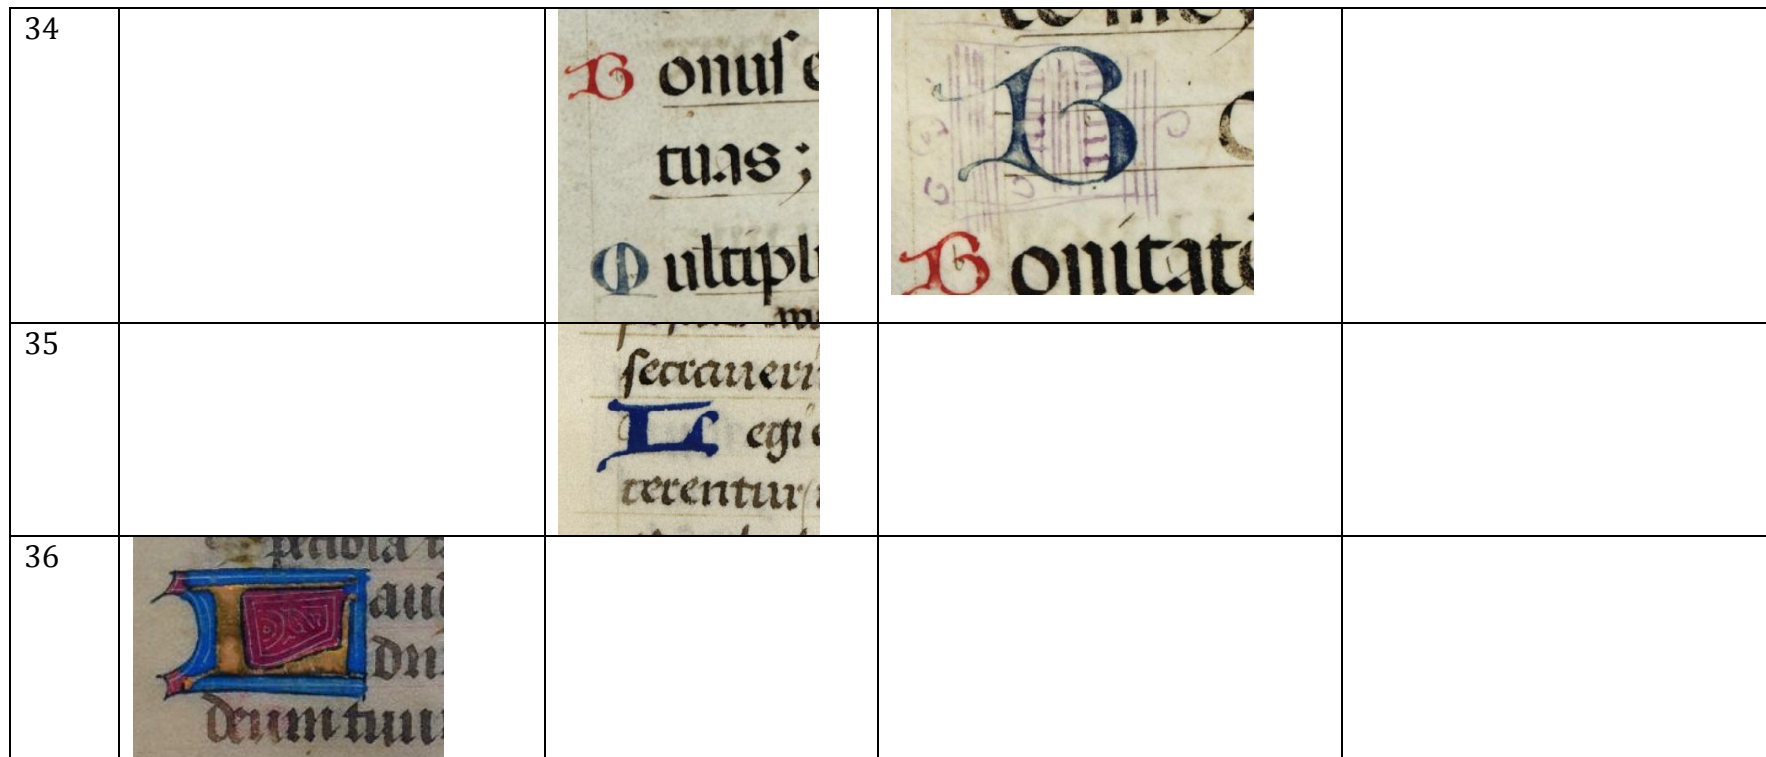 34
B onuſ e
tuas ;
M ultipl
B
B onitate
35
ſecraueri
L egi e
terentur
36
L aud
dn
deum tuum